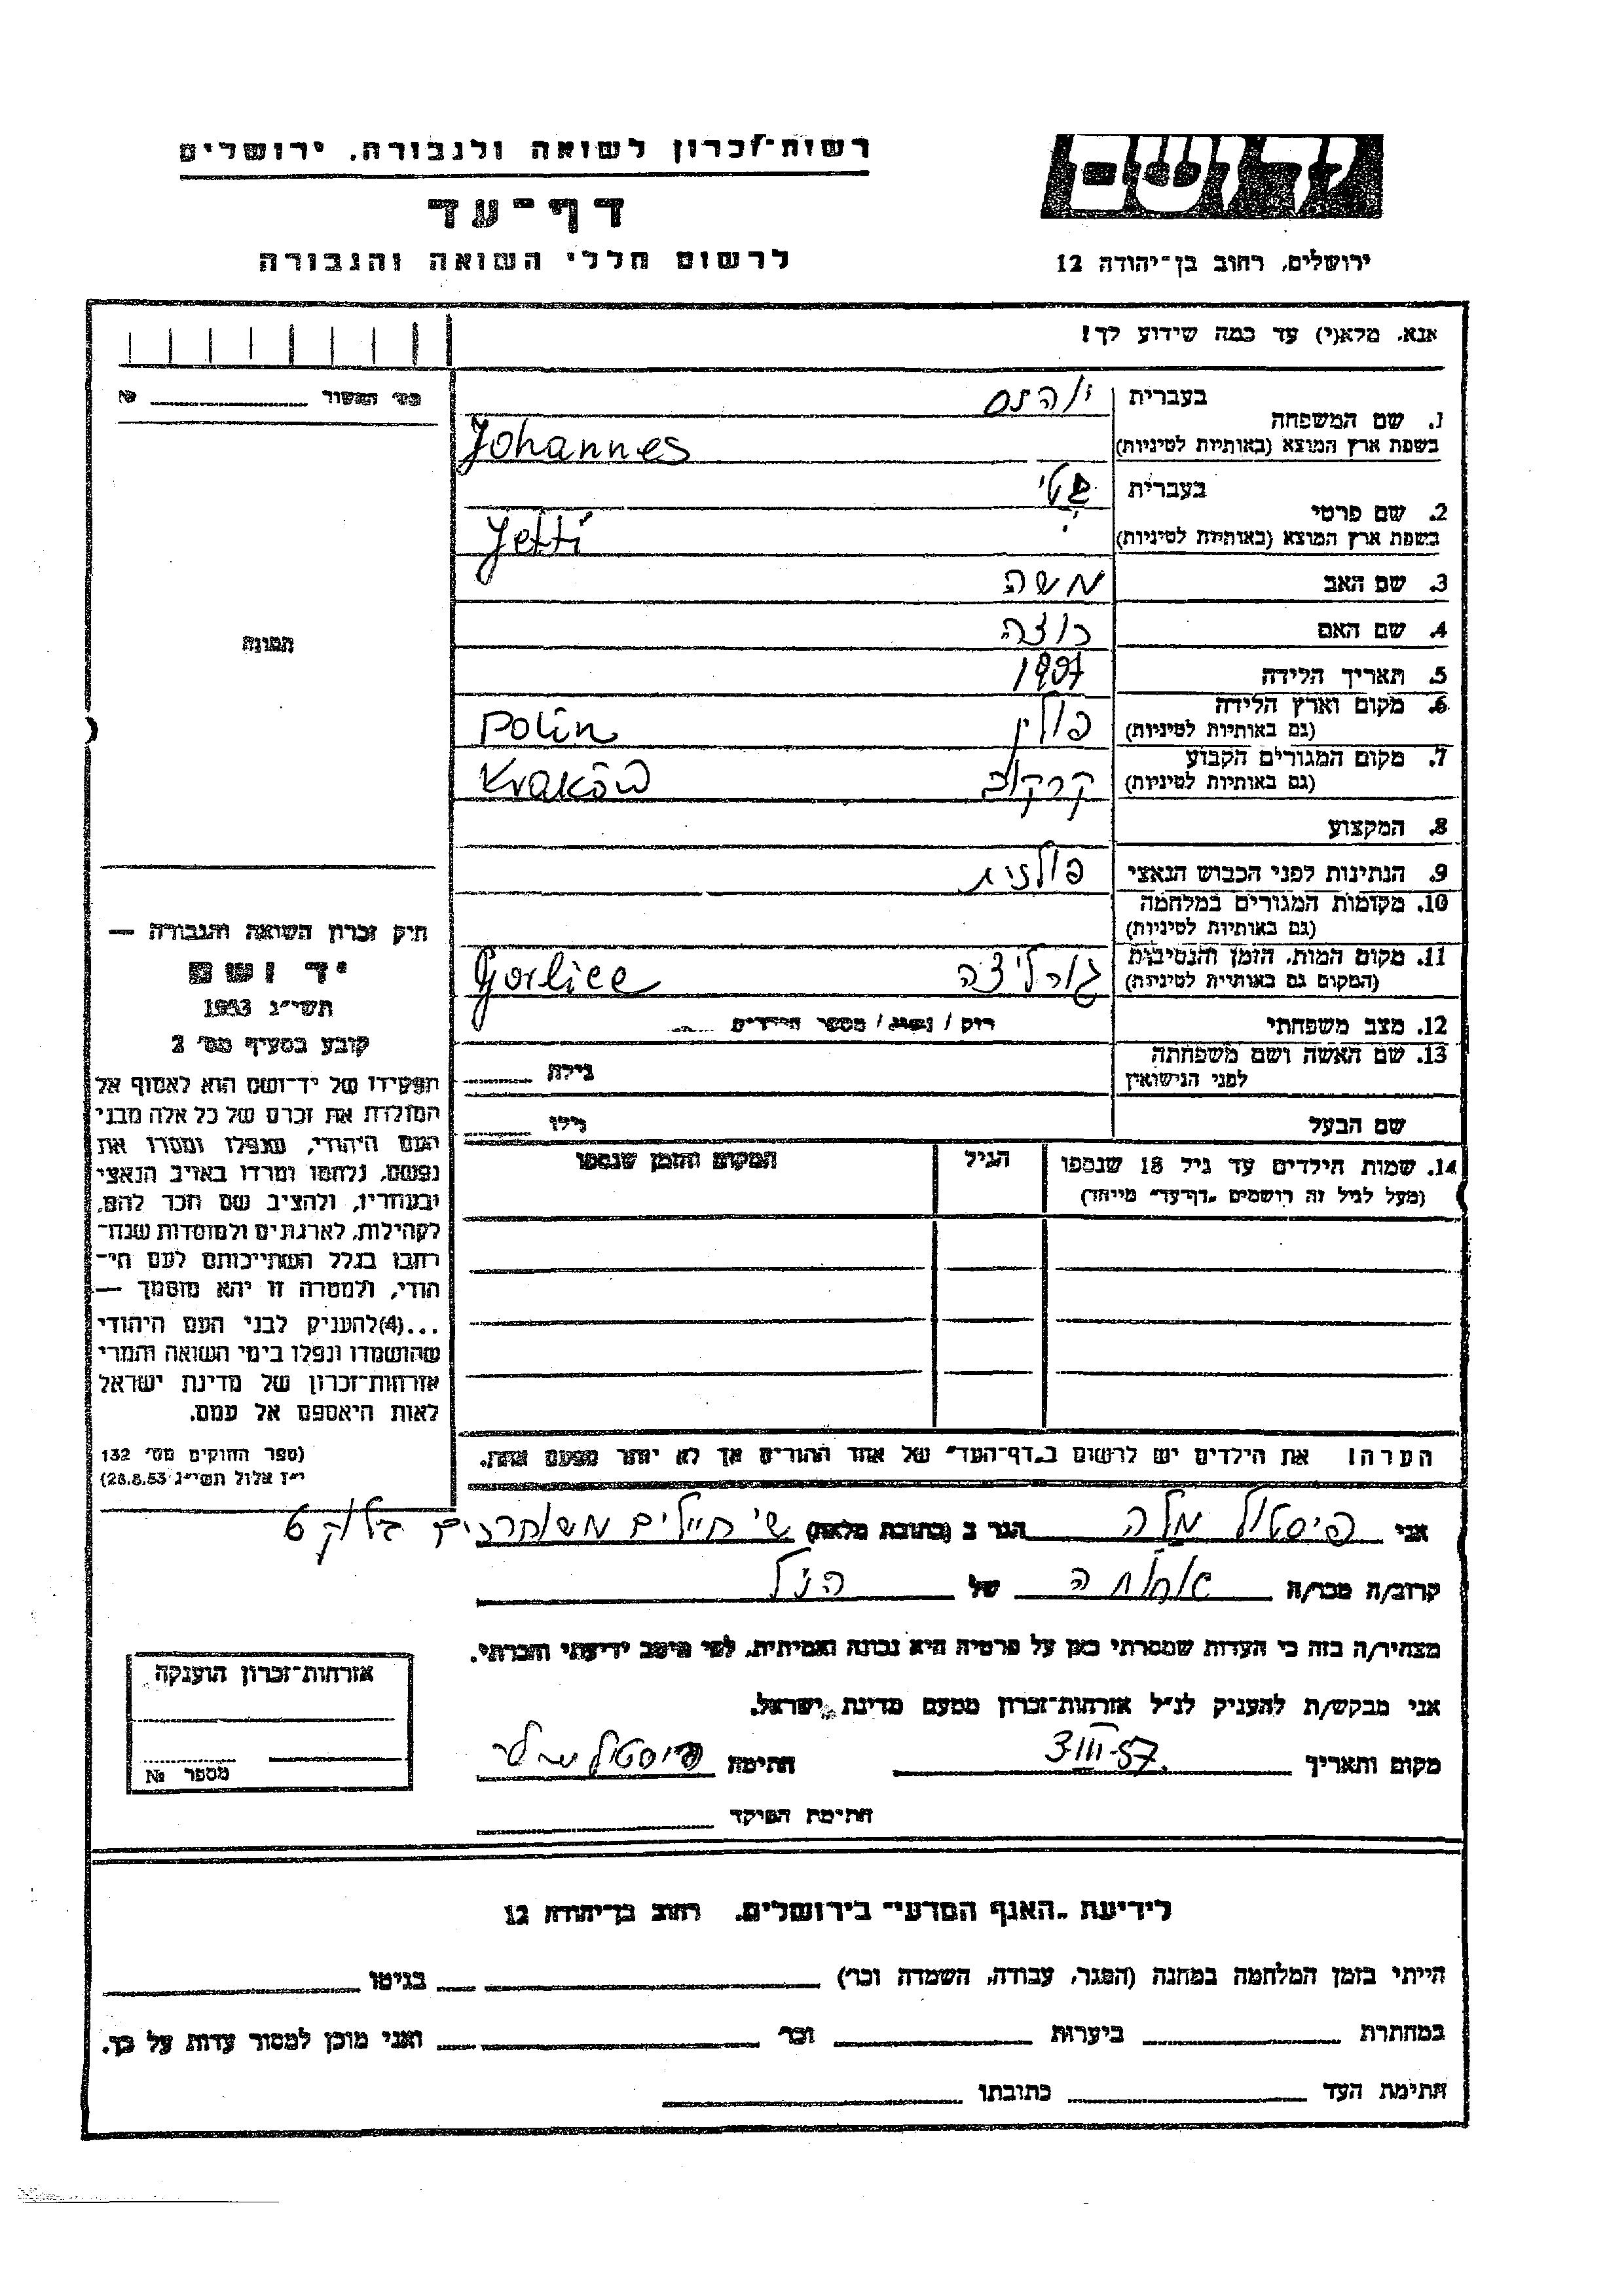 רשות־זכרון לשואה ולגבורה, ירושלים
דף־עד
לרשום חללי השואה והגבורה
יד ושם
ירושלים, רחוב בן־יהודה 12
אנא, מלא(י) עד כמה שידוע לך!
1. שם המשפחה
בעברית יוהנס
בשפת ארץ המוצא (באותיות לטיניות) Johannes
2. שם פרטי
בעברית
בשפת ארץ המוצא (באותיות לטיניות) Jetti
3. שם האב משה
4. שם האם
5. תאריך הלידה 1907
6. מקום וארץ הלידה פולין Polin
(גם באותיות לטיניות)
7. מקום המגורים הקבוע קרקוב Kraków
(גם באותיות לטיניות)
8. המקצוע
9. הנתינות לפני הכבוש הנאצי פולנית
10. מקומות המגורים במלחמה
(גם באותיות לטיניות)
11. מקום המות, הזמן והנסיבות גורליצה Gorlice
(המקום גם באותיות לטיניות)
12. מצב משפחתי רוק / נשוי / מספר הילדים
13. שם האשה ושם משפחתה גילה
לפני הנישואין
שם הבעל גילו
14. שמות הילדים עד גיל 18 שנספו הגיל המקום והזמן שנספו
(מעל לגיל זה רושמים „דף־עד” מייחד)
הערה! את הילדים יש לרשום ב„דף־העד” של אחד ההורים אך לא יותר מפעם אחת.
מס׳ התשור №
תמונה
חיק זכרון השואה והגבורה —
יד ושם
תשי״ג 1953
קובע בסעיף מס׳ 2
תפקידו של יד־ושם הוא לאסוף אל
המולדת את זכרם של כל אלה מבני
העם היהודי, שנפלו ומסרו את
נפשם, נלחמו ומרדו באויב הנאצי
ובעוזריו, ולהציב שם וזכר להם,
לקהילות, לארגונים ולמוסדות שנח־
רבו בגלל השתייכותם לעם הי־
הודי, ולמטרה זו יהא מוסמך —
...(4) להעניק לבני העם היהודי
שהושמדו ונפלו בימי השואה והמרי
אזרחות־זכרון של מדינת ישראל
לאות היאספם אל עמם.
(ספר החוקים מס׳ 132
י״ז אלול תשי״ג 28.8.53)
אני פיסטול מלה הגר ב (כתובת מלאה) שי חיילים משוחררים בלוק 6
קרוב/ה מכר/ה אחות ה של הנ״ל
מצהיר/ה בזה כי העדות שמסרתי כאן על פרטיה היא נכונה ואמיתית, לפי מיטב ידיעתי והכרתי.
אני מבקש/ת להעניק לנ״ל אזרחות־זכרון מטעם מדינת ישראל.
מקום ותאריך 3.III.57 חתימה
חתימת הפיקד
אזרחות־זכרון הוענקה
מספר №
לידיעת „האגף המדעי” בירושלים, רחוב בן־יהודה 12
הייתי בזמן המלחמה במחנה (הסגר, עבודה, השמדה וכר׳) בגיטו
במחתרת ביערות וכר׳ ואני מוכן למסור עדות על כך.
חתימת העד כתובתו